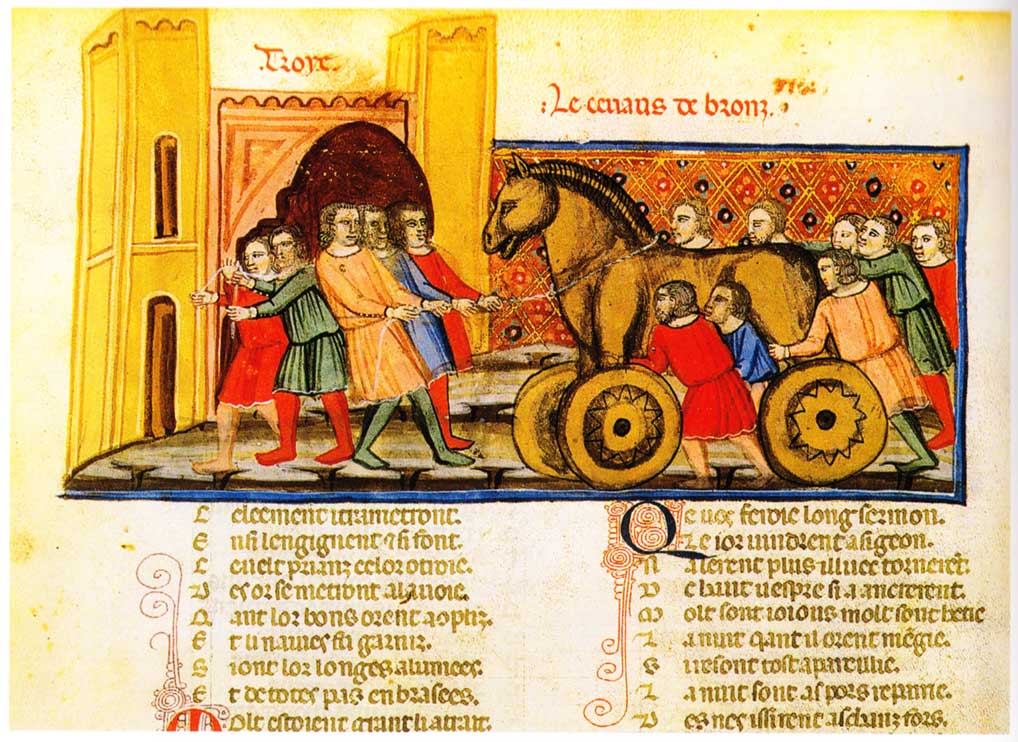 Troye.
Le cevaus de bronz.
Celeement itrametront.
Ensi lengignent & si font.
Ce uelt prianz ce lor otroie.
Ves or se metront a la uoie.
Qant lor bons orent
Et li nauies fu garniz.
Si ont lor loges alumees.
Et de totes pas enbrasees.
Molt estoient grant li atrait.
Qe uos feroie long sermon.
Le ior uindrent a sigeon.
Nalerent plus illuec tornerēt.
De haut uespre si a ancrerent.
Molt sont ioious molt sont hetie
La nuit qant il orent mēgie.
sont tost apareillie.
La nuit sont as pors repairie.
Des nes issirent as chanz fors.